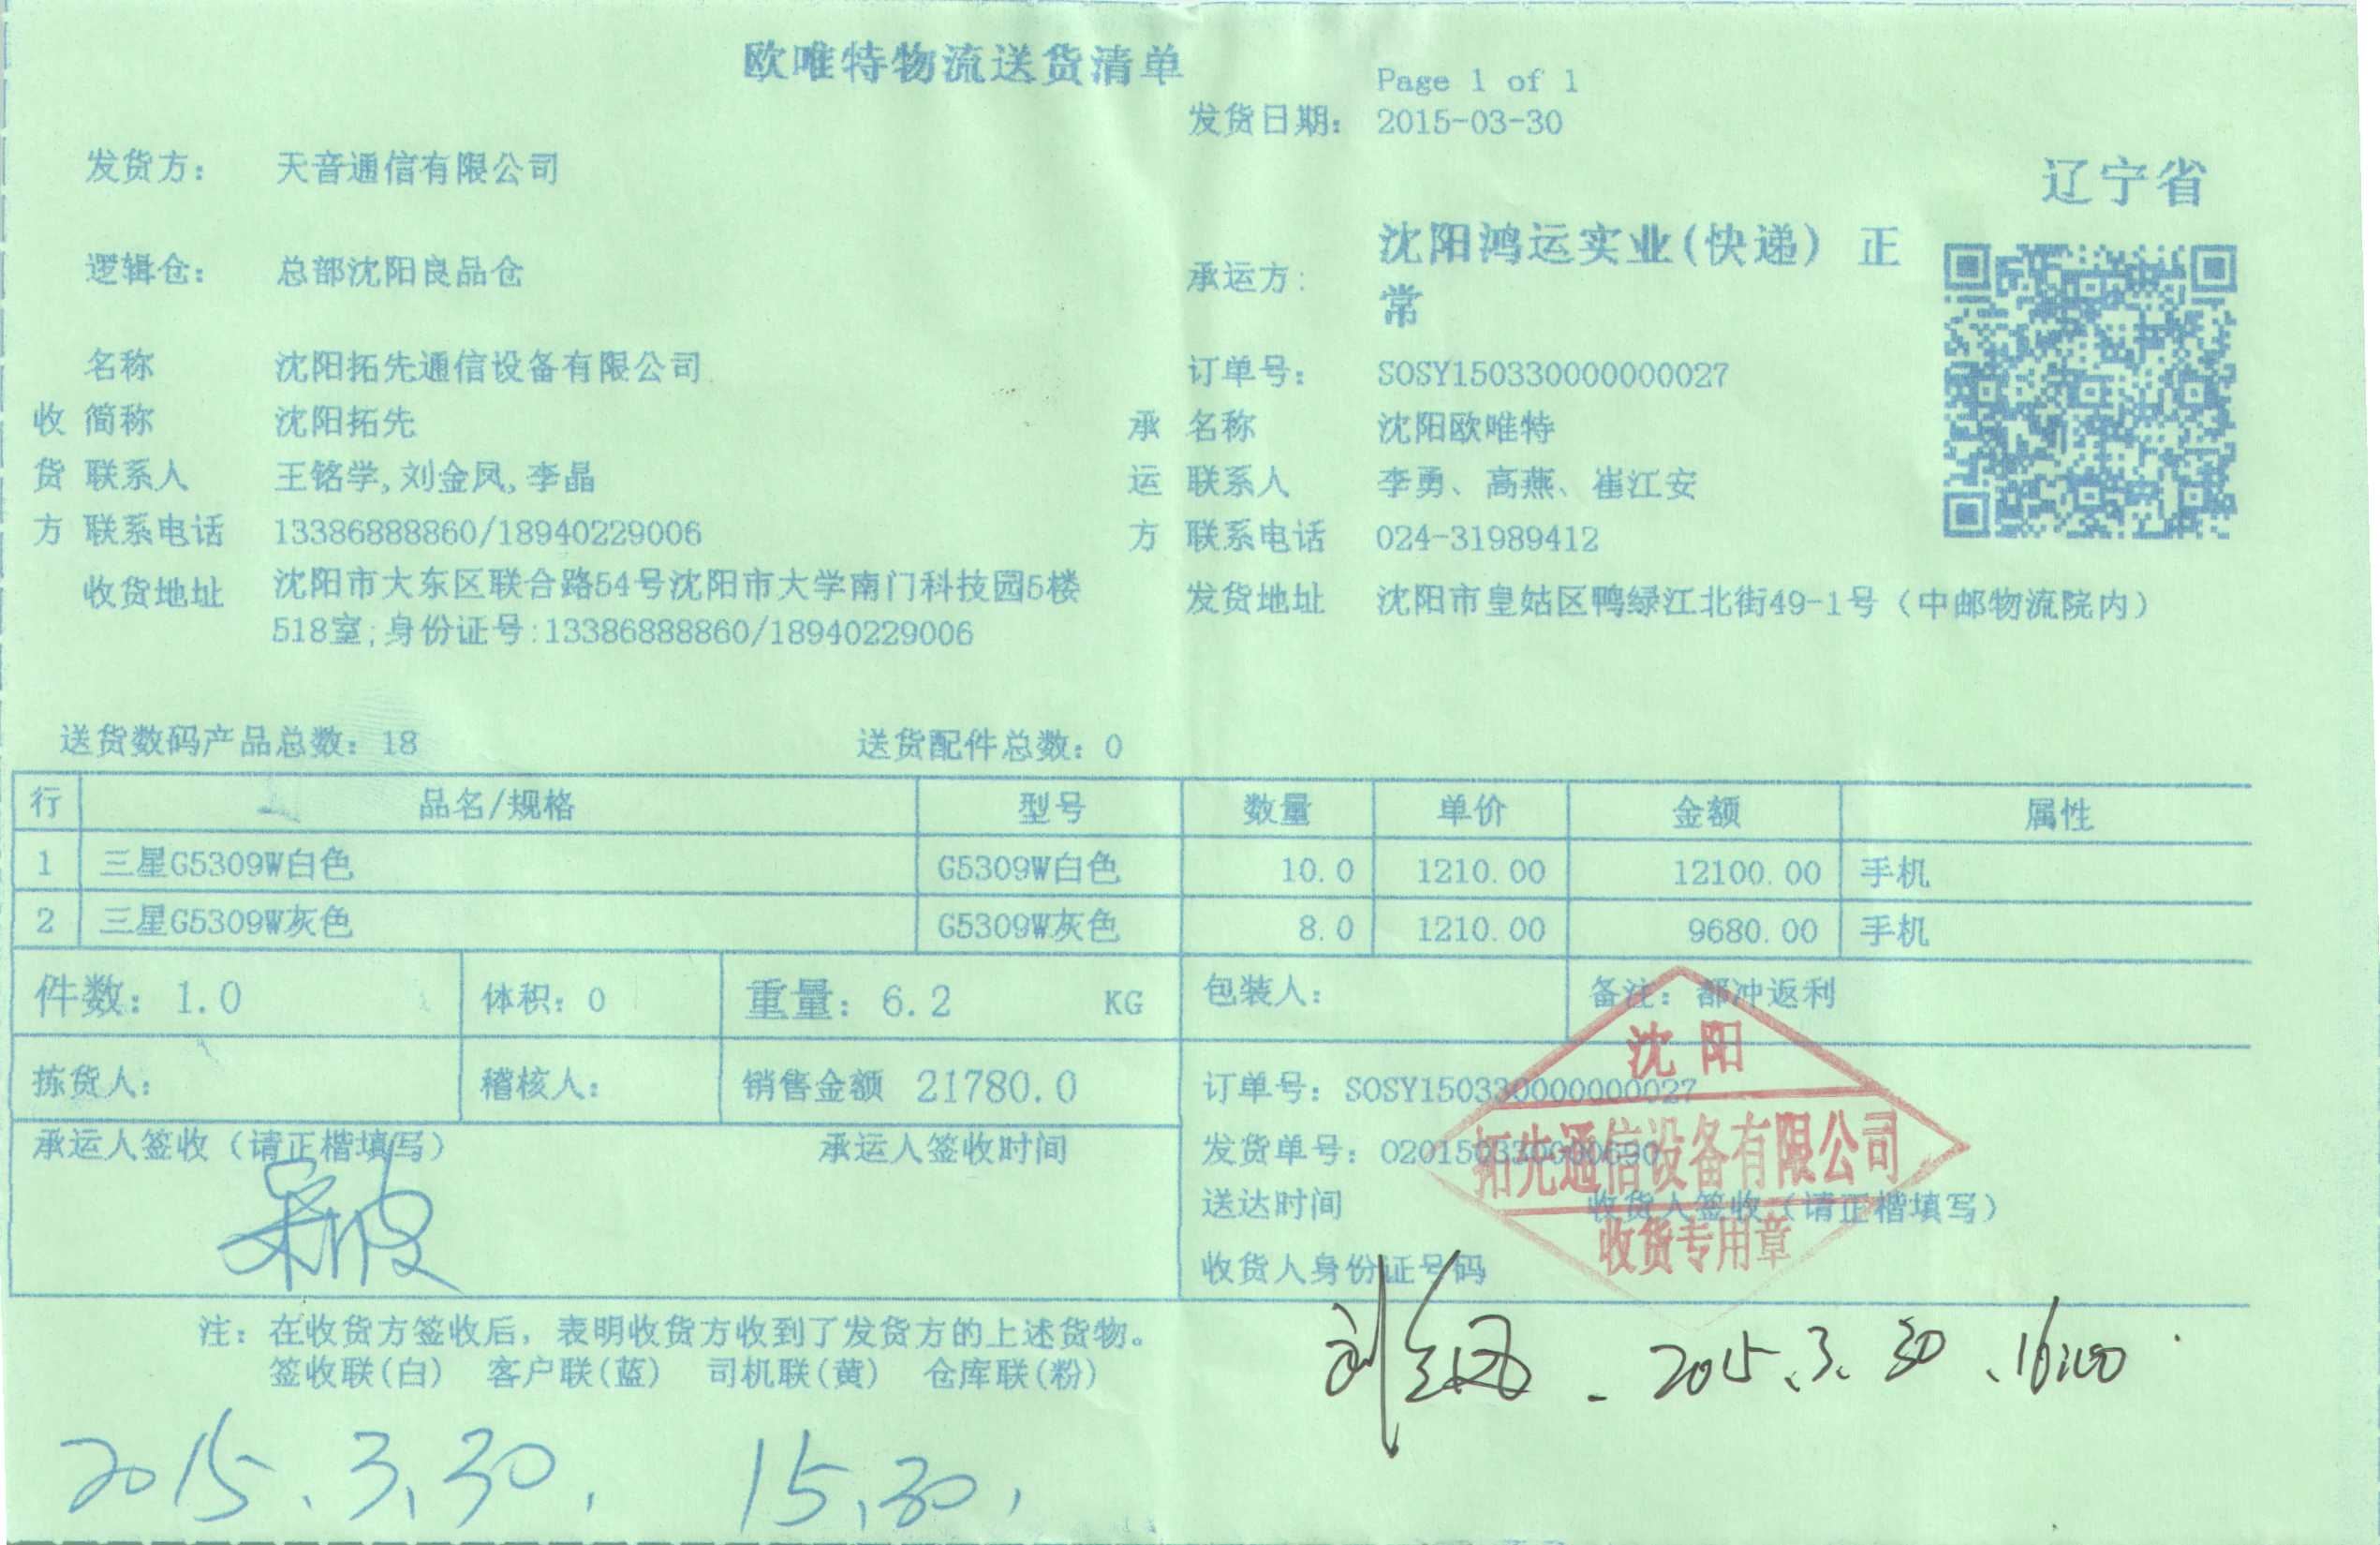 欧唯特物流送货清单
Page 1 of 1
发货日期： 2015-03-30
发货方： 天音通信有限公司
辽宁省
逻辑仓： 总部沈阳良品仓
承运方： 沈阳鸿运实业(快递) 正
常
名称 沈阳拓先通信设备有限公司
订单号： SOSY150330000000027
收 简称 沈阳拓先
承 名称 沈阳欧唯特
货 联系人 王铭学,刘金凤,李晶
运 联系人 李勇、高燕、崔江安
方 联系电话 13386888860/18940229006
方 联系电话 024-31989412
收货地址 沈阳市大东区联合路54号沈阳市大学南门科技园5楼
518室;身份证号:13386888860/18940229006
发货地址 沈阳市皇姑区鸭绿江北街49-1号（中邮物流院内）
送货数码产品总数：18 送货配件总数：0
行 品名/规格 型号 数量 单价 金额 属性
1 三星G5309W白色 G5309W白色 10.0 1210.00 12100.00 手机
2 三星G5309W灰色 G5309W灰色 8.0 1210.00 9680.00 手机
件数：1.0 体积：0 重量：6.2 KG 包装人： 备注：都冲返利
拣货人： 稽核人： 销售金额 21780.0 订单号：SOSY150330000000027
承运人签收（请正楷填写） 承运人签收时间
发货单号：020150330000690
送达时间 收货人签收（请正楷填写）
收货人身份证号码
沈阳
拓先通信设备有限公司
收货专用章
注：在收货方签收后，表明收货方收到了发货方的上述货物。
签收联(白) 客户联(蓝) 司机联(黄) 仓库联(粉)
刘金凤 . 2015.3.30 .16:00
2015.3.30. 15.30.